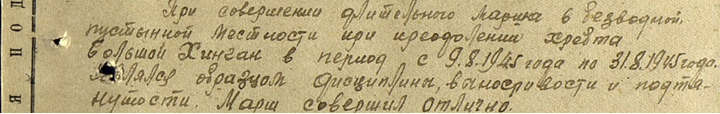 При совершении длительного марша в безводной,
пустынной местности при преодолении хребта
Большой Хинган в период с 9.8.1945 года по 31.8.1945 года.
Являлся образцом дисциплины, выносливости и подтя-
нутости. Марш совершил отлично.